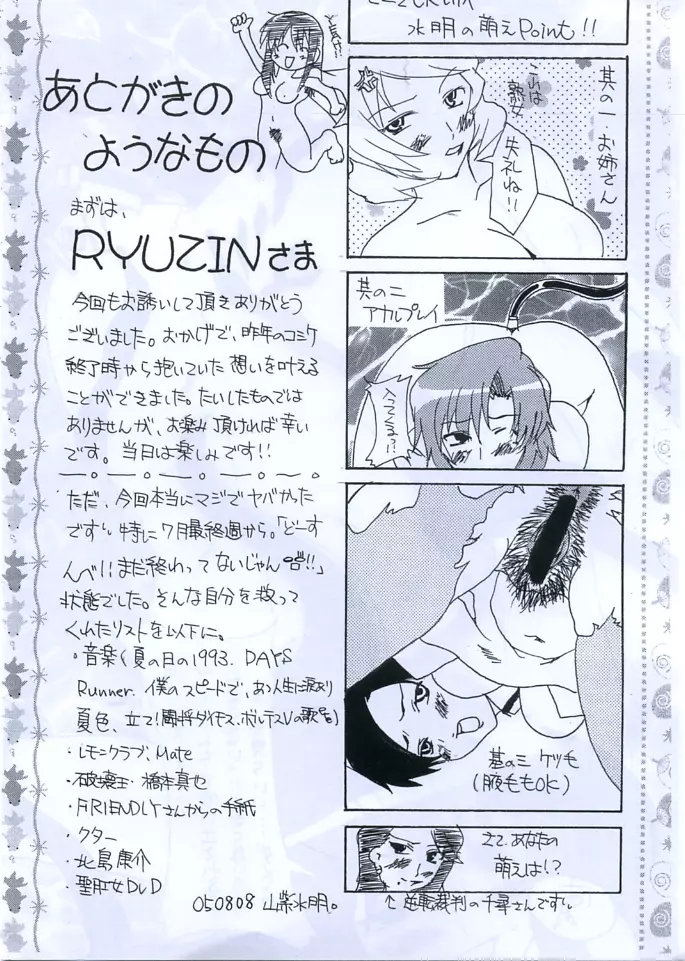 水明の萌えPoint!!
あとがきの
ようなもの
まずは、
RYUZINさま
今回もお誘いして頂きありがとう
ございました。おかげで、昨年のコミケ
終了時から抱いていた想いを叶える
ことができました。たいしたものでは
ありませんが、お楽しみ頂ければ幸い
です。当日は楽しみです!!
ただ、今回本当にマジでヤバかった
です。特に7月最終週から。「どーす
んべ!!まだ終わってないじゃん!!」
状態でした。そんな自分を救って
くれたリストを以下に。
・音楽(夏の日の1993. DAYS
Runner. 僕のスピードで、ああ人生に涙あり
夏色、立て!闘将ダイモス、ボルテスVの歌
・レモンクラブ、Mate
・破壊王・橋本真也
・FRIENDLYさんからの手紙
・クター
・北島康介
・聖肛女DVD
050808 山紫水明。
其の一 お姉さん
これは
熟女
失礼ね!!
其の二
アナルプレイ
入ってくるっ!!
其の三 ケツ毛
(腋毛もOK)
さて、あなたの
萌えは!?
↑逆転裁判の千尋さんです。